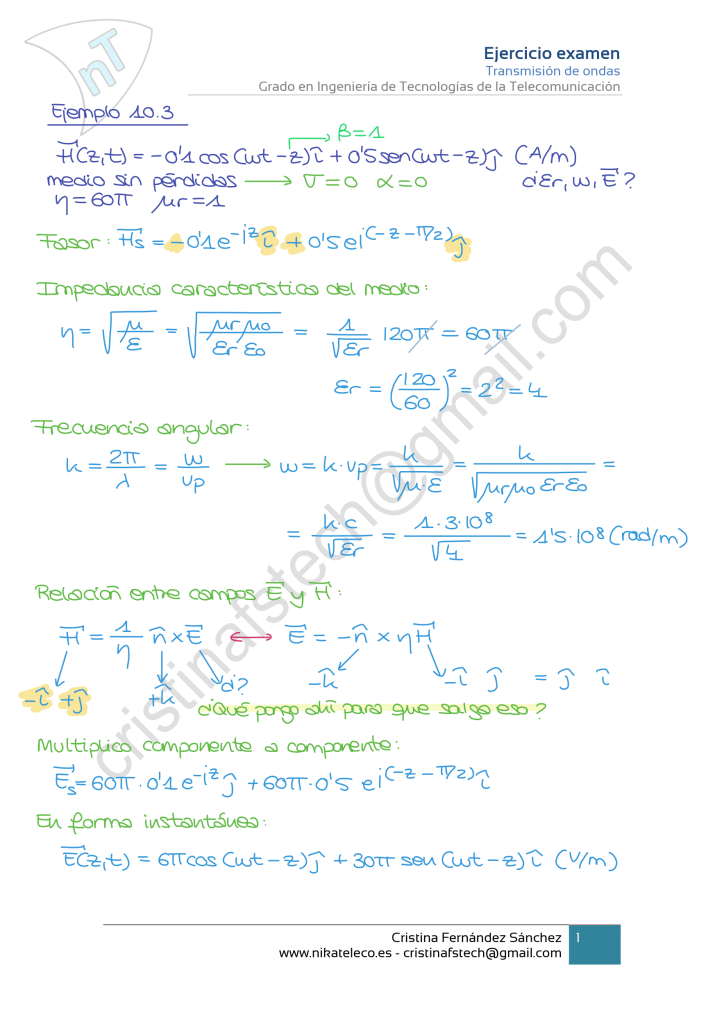 nT
Ejercicio examen
Transmisión de ondas
Grado en Ingeniería de Tecnologías de la Telecomunicación
Ejemplo 10.3
β=1
H⃗(z,t) = -0'1 cos(ωt-z)î + 0'5 sen(ωt-z)ĵ (A/m)
medio sin pérdidas → σ=0 α=0 ¿εr, ω, E⃗?
η=60π μr=1
Fasor: H⃗s = -0'1e^(-jz) î + 0'5 e^(j(-z-π/2)) ĵ
Impedancia característica del medio:
η = √(μ/ε) = √(μrμ0/εrε0) = 1/√εr 120π = 60π
εr = (120/60)² = 2² = 4
Frecuencia angular:
k = 2π/λ = ω/vp → ω = k·vp = k/√(μ·ε) = k/√(μrμ0 εrε0) =
= k·c/√εr = 1·3·10⁸/√4 = 1'5·10⁸ (rad/m)
Relación entre campos E⃗ y H⃗:
H⃗ = 1/η n̂×E⃗ ↔ E⃗ = -n̂ × ηH⃗
-î +ĵ +k̂ ¿? -k̂ -î ĵ = ĵ î
¿Qué pongo ahí para que salga eso?
Multiplico componente a componente:
E⃗s = 60π·0'1e^(-jz) ĵ + 60π·0'5 e^(j(-z-π/2)) î
En forma instantánea:
E⃗(z,t) = 6π cos(ωt-z)ĵ + 30π sen(ωt-z)î (V/m)
cristinafstech@gmail.com
Cristina Fernández Sánchez 1
www.nikateleco.es - cristinafstech@gmail.com